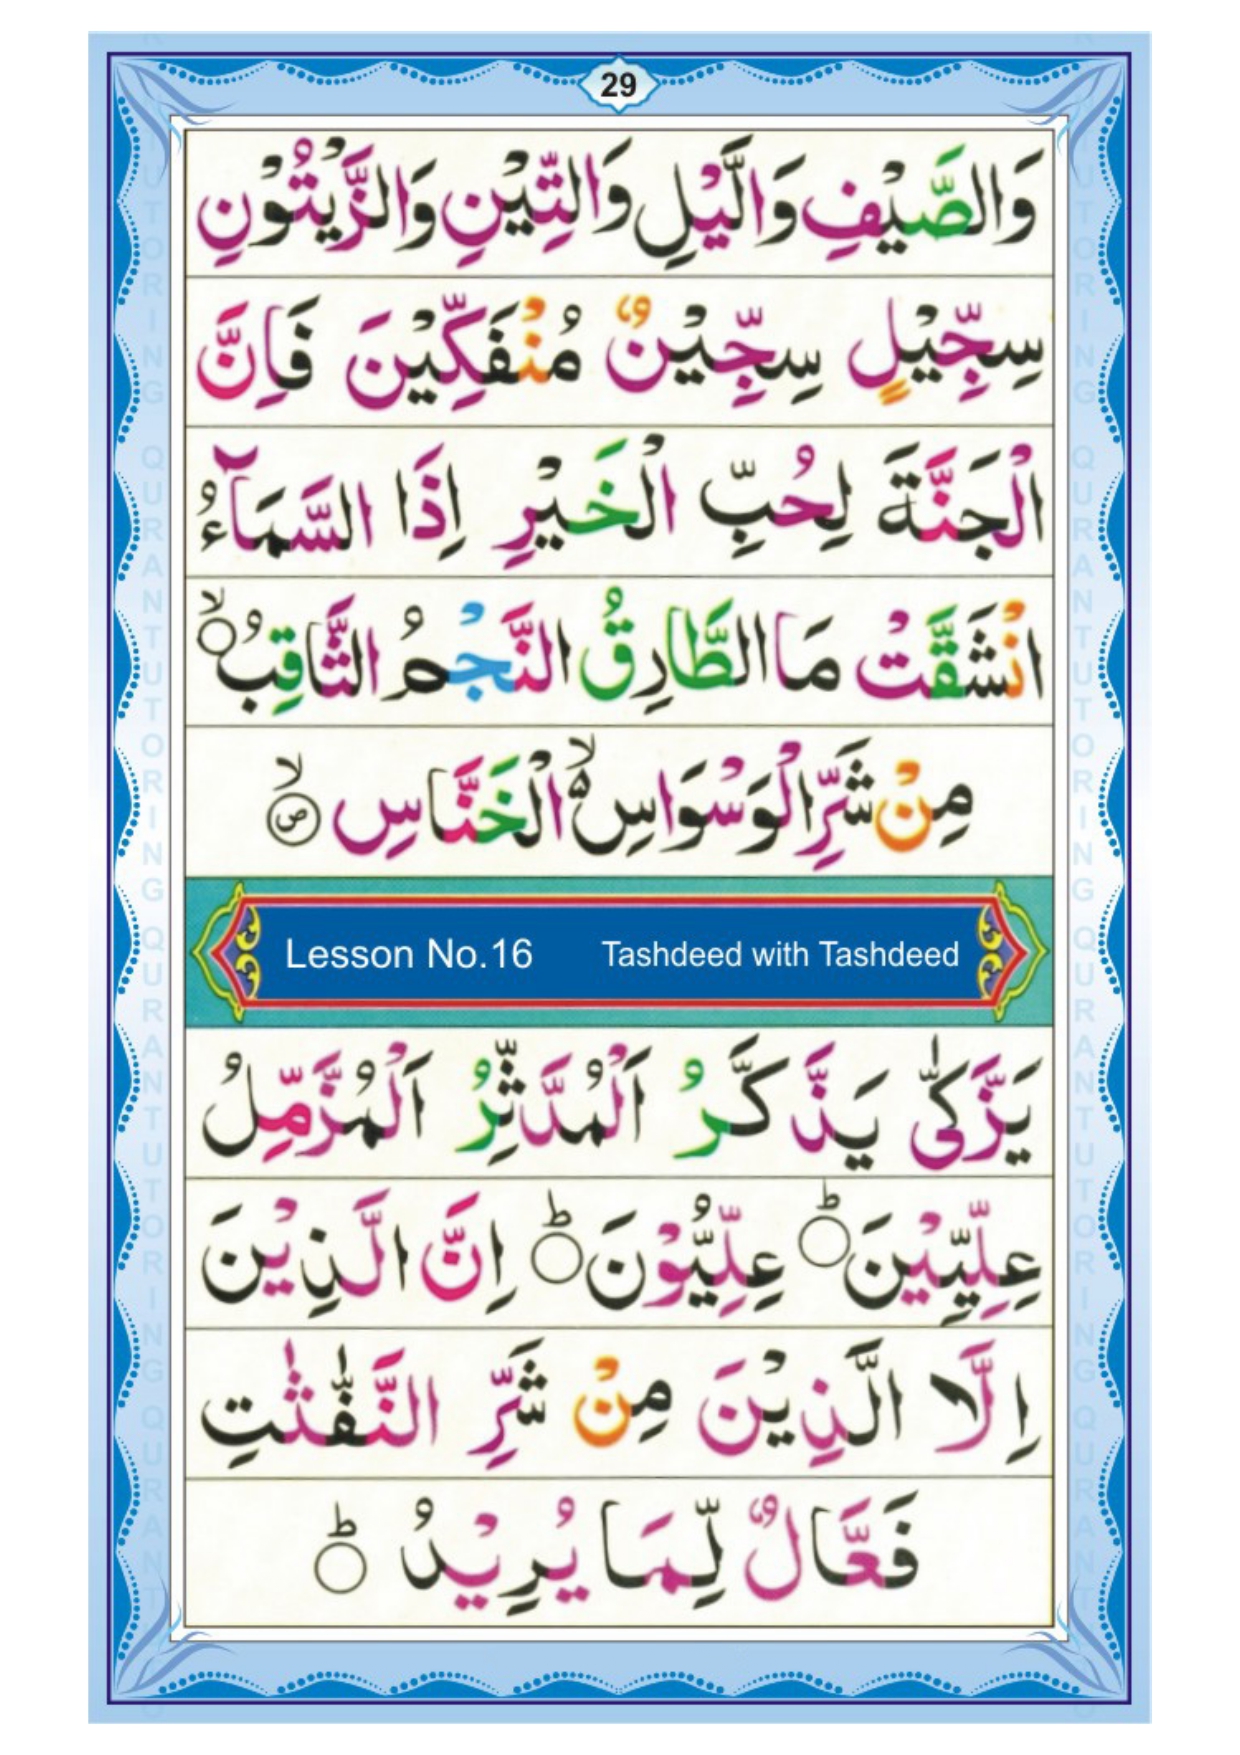 29
وَالصَّيْفِ وَالَّيْلِ وَالتِّيْنِ وَالزَّيْتُوْنِ
سِجِّيْلٍ سِجِّيْنٌ مُنْفَكِّيْنَ فَاِنَّ
الْجَنَّةَ لِحُبِّ الْخَيْرِ اِذَا السَّمَآءُ
انْشَقَّتْ مَا الطَّارِقُ النَّجْمُ الثَّاقِبُ ۙ
مِنْ شَرِّ الْوَسْوَاسِ ۙ۬ الْخَنَّاسِ ۙ ص
Lesson No.16 Tashdeed with Tashdeed
يَزَّكّٰى يَذَّكَّرُ اَلْمُدَّثِّرُ اَلْمُزَّمِّلُ
عِلِّيِّيْنَ ؕ عِلِّيُّوْنَ ؕ اِنَّ الَّذِيْنَ
اِلَّا الَّذِيْنَ مِنْ شَرِّ النَّفّٰثٰتِ
فَعَّالٌ لِّمَا يُرِيْدُ ؕ
QURAN TUTORING